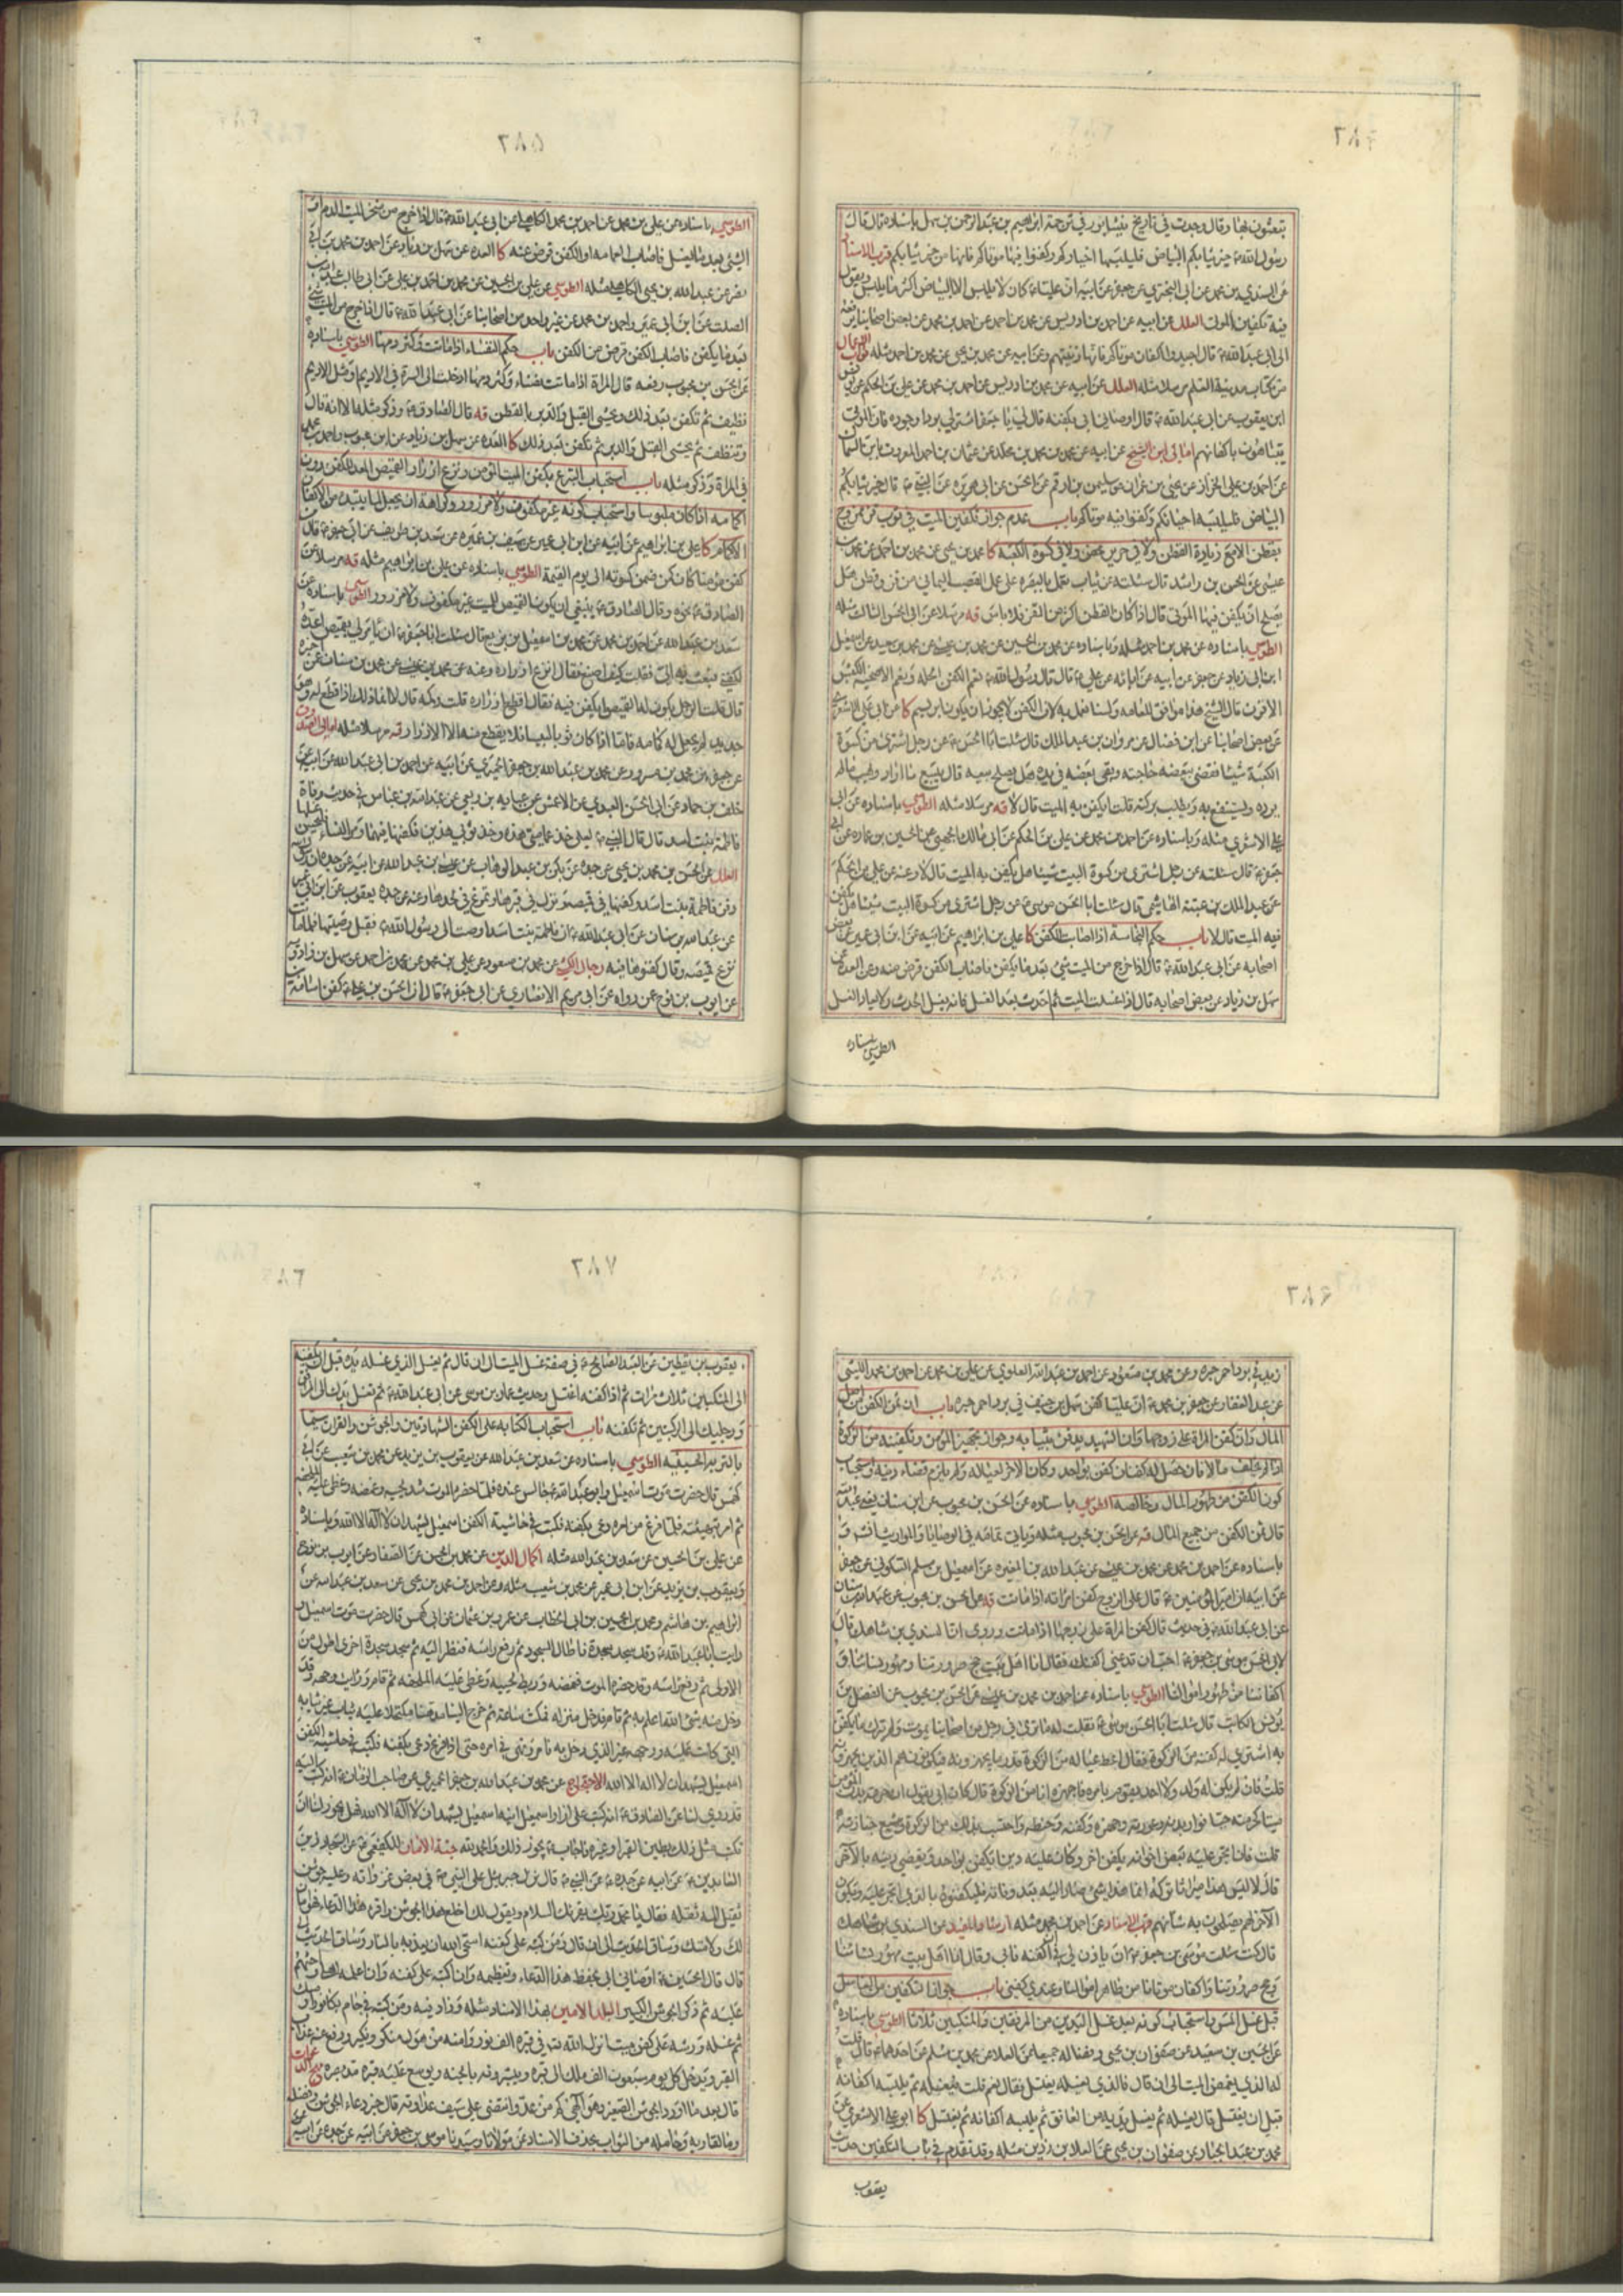 تبعثون بها وقال وجدت في تاريخ نيشابور في ترجمة ابراهيم بن عبد الرحمن بن سهل باسناده قال قال
رسول الله خير ثيابكم البياض فليلبسها احياؤكم وكفنوا فيها موتاكم فانها من خير ثيابكم قرب الاسناد
عن السندي بن محمد عن ابي البختري عن جعفر عن ابيه ان عليا كان لا يلبس الا البياض اكثر ما يلبس ويقول
فيه تكفين الموتى العلل عن ابيه عن احمد بن ادريس عن محمد بن احمد عن احمد بن محمد عن بعض اصحابنا يرفعه
الى ابي عبد الله قال اجيدوا اكفان موتاكم فانها زينتهم وعن ابيه عن محمد بن يحيى عن محمد بن احمد مثله ثواب الاعمال
من كتاب مدينة العلم مرسلا مثله العلل عن ابيه عن احمد بن ادريس عن احمد بن محمد عن علي بن الحكم عن يونس
ابن يعقوب عن ابي عبد الله قال اوصاني ابي بكفنه قال لي يا جعفر اشتر لي بردا وجوده فان الموتى
يتباهون باكفانهم امالي ابن الشيخ عن ابيه عن محمد بن محمد بن مخلد عن عثمان بن احمد المعروف بابن السماك
عن احمد بن علي الخزاز عن يحيى بن عمران عن سليمن بن ارقم عن الحسن عن ابي هريرة عن النبي قال خير ثيابكم
البياض فليلبسه احياؤكم وكفنوا فيه موتاكم باب عدم جواز تكفين الميت في ثوب ممزوج
بقطن الا مع زيادة القطن ولا في حرير محض ولا في كسوة الكعبة كا محمد بن يحيى عن محمد بن احمد عن محمد بن
عيسى عن الحسن بن راشد قال سئلته عن ثياب تعمل بالبصرة على عمل العصب اليماني من قز وقطن هل
يصلح ان يكفن فيها الموتى قال اذا كان القطن اكثر من القز فلا باس قه مرسلا عن ابي الحسن الثالث مثله
الطوسي باسناده عن محمد بن احمد مثله وباسناده عن محمد بن احمد بن الحسين عن محمد بن يحيى عن محمد بن حميد عن اسمعيل
ابن ابي زياد عن جعفر عن ابيه عن ابائه عن علي قال قال رسول الله نعم الكفن الحلة ونعم الاضحية الكبش
الاقرن قال الشيخ هذا موافق للعامة ولسنا نعمل به لان الكفن لا يجوز ان يكون ابريسم كا عن ابي علي الاشعري
عن بعض اصحابنا عن ابن فضال عن مروان بن عبد الملك قال سئلت ابا الحسن عن رجل اشترى من كسوة
الكعبة شيئا فقضى ببعضه حاجته وبقي بعضه في يده هل يصلح بيعه قال يبيع ما اراد ويهب ما لم
يرده ويستنفع به ويطلب بركته قلت ايكفن به الميت قال لا قه مرسلا مثله الطوسي باسناده عن ابي
علي الاشعري مثله وباسناده عن احمد بن محمد عن علي بن الحكم عن ابي مالك الجهني عن الحسين بن عمارة عن ابي
جعفر قال سئلته عن رجل اشترى من كسوة البيت شيئا هل يكفن به الميت قال لا وعنه عن علي بن الحكم
عن عبد الملك بن عتبة الهاشمي قال سئلت ابا الحسن موسى عن رجل اشترى من كسوة البيت شيئا هل يكفن
فيه الميت قال لا باب حكم النجاسة اذا اصابت الكفن كا علي بن ابراهيم عن ابيه عن ابن ابي عمير عن بعض
اصحابه عن ابي عبد الله قال اذا خرج من الميت شئ بعد ما يكفن فاصاب الكفن قرض منه وعن العدة عن
سهل بن زياد عن بعض اصحابه قال اذا غسلت الميت ثم احدث بعد الغسل فانه يغسل الحدث ولا يعاد الغسل
الطوسي باسناده
٢٨٥
الطوسي باسناده عن علي بن محمد عن احمد بن محمد الكاهلي عن ابي عبد الله قال اذا خرج من منخر الميت الدم او
الشئ بعد ما يغسل فاصاب العمامة او الكفن قرض عنه كا العدة عن سهل بن زياد وعن احمد بن محمد بن ابي
نصر عن عبد الله بن يحيى الكاهلي مثله الطوسي عن علي بن الحسين عن محمد بن احمد بن علي عن ابي طالب عبد الله بن
الصلت عن ابن ابي عمير واحمد بن محمد عن غير واحد من اصحابنا عن ابي عبد الله قال اذا خرج من الميت شئ
بعد ما يكفن فاصاب الكفن قرض من الكفن باب حكم النفساء اذا ماتت وكثر دمها الطوسي باسناده
عن الحسن بن محبوب رفعه قال المراة اذا ماتت نفساء وكثر دمها ادخلت الى السرة في الاديم او مثل الاديم
نظيف ثم تكفن بعد ذلك ويحشى القبل والدبر بالقطن قه قال الصادق وذكر مثله الا انه قال
وتنظف ثم يحشى القبل والدبر ثم تكفن بعد ذلك كا العدة عن سهل بن زياد عن ابن محبوب واحمد بن محمد
في المراة وذكر مثله باب استحباب التبرع بكفن الميت المؤمن ونزع ازرار القميص المعد للكفن دون
اكمامه اذا كان ملبوسا واستحباب كونه غير مكفوف ولا مزرور وكراهة ان يجعل لما يبتدء من الاكفان
الاكمام كا علي بن ابراهيم عن ابيه عن ابن ابي عمير عن سيف بن عميرة عن سعد بن طريف عن ابي جعفر قال من
كفن مؤمنا كان كمن ضمن كسوته الى يوم القيمة الطوسي باسناده عن علي بن ابراهيم مثله قه مرسلا عن
الصادق نحوه وقال الصادق ينبغي ان يكون القميص للميت غير مكفوف ولا مزرور الطوسي باسناده عن
سعد بن عبد الله عن احمد بن محمد عن محمد بن اسمعيل بن بزيع قال سئلت ابا جعفر ان يامر لي بقميص اعده
لكفني فبعث به الي فقلت كيف اصنع فقال انزع ازراره وعنه عن محمد بن الحسين عن محمد بن سنان عمن اخبره
قال قلت الرجل يكون له القميص ايكفن فيه فقال اقطع ازراره قلت وكمه قال لا انما ذلك اذا قطع له وهو
جديد لم يجعل له كما فاما اذا كان ثوبا لبيسا فلا يقطع منه الا الازرار قه مرسلا مثله امالي الصدوق
عن جعفر بن محمد بن مسرور عن محمد بن عبد الله بن جعفر الحميري عن ابيه عن احمد بن ابي عبد الله عن ابيه عن
خلف بن حماد عن ابي الحسن العبدي عن الاعمش عن عباية بن ربعي عن عبد الله بن عباس في حديث وفاة
فاطمة بنت اسد قال قال النبي لعلي خذ عمامتي هذه وخذ ثوبي هذين فكفنها فيهما ومر النساء فليحسن غسلها
العلل عن الحسن بن محمد بن يحيى عن جده عن بكر بن عبد الوهاب عن عيسى بن عبد الله عن ابيه عن جده ان رسول الله
دفن فاطمة بنت اسد وكفنها في قميصه ونزل في قبرها وتمرغ في لحدها وعنه عن جده يعقوب عن ابن ابي عمير
عن عبد الله بن سنان عن ابي عبد الله ان فاطمة بنت اسد اوصت الى رسول الله فقبل وصيتها فلما ماتت
نزع قميصه وقال كفنوها فيه رجال الكشي عن محمد بن مسعود عن علي بن محمد عن محمد بن احمد عن سهل بن زاذويه
عن ايوب بن نوح عمن رواه عن ابي مريم الانصاري عن ابي جعفر قال ان الحسن بن علي كفن اسامة بن
٢٨٦
زيد في برد احمر حبرة وعن محمد بن مسعود عن احمد بن عبد الله العلوي عن علي بن محمد عن احمد بن محمد الليثي
عن عبد الغفار عن جعفر بن محمد ان عليا كفن سهل بن حنيف في برد احمر حبرة باب ان ثمن الكفن من اصل
المال وان كفن المراة على زوجها وان الشهيد يدفن بثيابه وجواز تجهيز المؤمن وتكفينه من الزكوة
اذا لم يخلف مالا فان حصل له كفنان كفن بواحد وكان الاخر لعياله ولم يلزم قضاء دينه واستحباب
كون الكفن من طهور المال وخالصه الطوسي باسناده عن الحسن بن محبوب عن ابن سنان يعني عبد الله
قال ثمن الكفن من جميع المال قه عن الحسن بن محبوب مثله وياتي تمامه في الوصايا والمواريث انش و
باسناده عن احمد بن محمد عن محمد بن عيسى عن عبد الله بن المغيرة عن اسمعيل بن مسلم السكوني عن جعفر
عن ابيه ان امير المؤمنين قال على الزوج كفن امراته اذا ماتت قه عن الحسن بن محبوب عن عبد الله بن سنان
عن ابي عبد الله في حديث قال كفن المراة على زوجها اذا ماتت وروى ان السندي بن شاهك قال
لابي الحسن موسى بن جعفر احب ان تدعني اكفنك فقال انا اهل بيت حج صرورتنا ومهور نسائنا و
اكفاننا من طهور اموالنا الطوسي باسناده عن احمد بن محمد بن عيسى عن الحسن بن محبوب عن الفضل بن
يونس الكاتب قال سئلت ابا الحسن موسى فقلت له ما ترى في رجل من اصحابنا يموت ولم يترك ما يكفن
به اشتري له كفنه من الزكوة فقال اعط عياله من الزكوة قدر ما يجهزونه فيكونون هم الذين يجهزونه
قلت فان لم يكن له ولد ولا احد يقوم بامره فاجهزه انا من الزكوة قال كان ابي يقول ان حرمة بدن المؤمن
ميتا كحرمته حيا فوار بدنه وعورته وجهزه وكفنه وحنطه واحتسب بذلك من الزكوة وشيع جنازته
قلت فان اتجر عليه بعض اخوانه بكفن اخر وكان عليه دين ايكفن بواحد ويقضي دينه بالاخر
قال لا ليس هذا ميراثا تركه انما هذا شئ صار اليه بعد وفاته فليكفنوه بالذي اتجر عليه ويكون
الاخر لهم يصلحون به شانهم قرب الاسناد عن احمد بن محمد مثله ارشاد المفيد عن السندي بن شاهك
قال كنت سئلت موسى بن جعفر ان ياذن لي في ان اكفنه فابى وقال انا اهل بيت مهور نسائنا
وحج صرورتنا واكفان موتانا من طاهر اموالنا وعندي كفني باب جواز التكفين من الغاسل
قبل غسل المس واستحباب كونه بعد غسل اليدين من المرفقين والمنكبين ثلاثا الطوسي باسناده
عن الحسين بن سعيد عن صفوان بن يحيى وفضالة جميعا عن العلاء عن محمد بن مسلم عن احدهما قال قلت
له الذي يغمض الميت الى ان قال فالذي يغسله يغتسل فقال نعم قلت فيغسله ثم يلبسه اكفانه
قبل ان يغتسل قال يغسله ثم يغسل يديه من العاتق ثم يلبسه اكفانه ثم يغتسل كا ابو علي الاشعري عن
محمد بن عبد الجبار عن صفوان بن يحيى عن العلاء بن رزين مثله وقد تقدم في باب التكفين حديث
يعقوب
٢٨٧
يعقوب بن يقطين عن العبد الصالح في صفة غسل الميت الى ان قال ثم يغسل الذي غسله يده قبل ان يكفنه
الى المنكبين ثلاث مرات ثم اذا كفنه اغتسل وحديث عمار بن موسى عن ابي عبد الله ثم تغسل يدك الى المرافق
ورجليك الى الركبتين ثم تكفنه باب استحباب الكتابة على الكفن الشهادتين والجوشن والقران سيما
بالتربة الحسينية الطوسي باسناده عن سعد بن عبد الله عن يعقوب بن يزيد عن محمد بن شعيب عن ابي
كهمس قال حضرت موت اسمعيل وابو عبد الله جالس عنده فلما حضره الموت شد لحييه وغمضه وغطى عليه الملحفة
ثم امر بتهيئته فلما فرغ من امره دعى بكفنه فكتب في حاشية الكفن اسمعيل يشهد ان لا اله الا الله وباسناده
عن علي بن الحسين عن سعد بن عبد الله مثله اكمال الدين عن محمد بن الحسن عن الصفار عن ايوب بن نوح
ويعقوب بن يزيد عن ابن ابي عمير عن محمد بن شعيب مثله وعن احمد بن محمد بن يحيى عن سعد بن عبد الله عن
ابراهيم بن هاشم ومحمد بن الحسين بن ابي الخطاب عن عمرو بن عثمان عن ابي كهمس قال حضرت موت اسمعيل و
رايت ابا عبد الله وقد سجد سجدة فاطال السجود ثم رفع راسه فنظر اليه ثم سجد سجدة اخرى اطول من
الاولى ثم رفع راسه وقد حضره الموت فغمضه وربط لحييه وغطى عليه الملحفة ثم قام ورايت وجهه وقد
دخل منه شئ الله اعلم به ثم قام فدخل منزله فمكث ساعة ثم خرج الينا مدهنا مكتحلا عليه ثياب غير ثيابه
التي كانت عليه ووجهه غير الذي دخل به فامر ونهى في امره حتى اذا فرغ دعى بكفنه فكتب في حاشية الكفن
اسمعيل يشهد ان لا اله الا الله الاحتجاج عن محمد بن عبد الله بن جعفر الحميري عن صاحب الزمان انه كتب اليه
قد روي لنا عن الصادق انه كتب على ازار اسمعيل ابنه اسمعيل يشهد ان لا اله الا الله فهل يجوز لنا ان
نكتب مثل ذلك بطين القبر او غيره فاجاب يجوز ذلك والحمد لله جنة الامان للكفعمي عن السجاد زين
العابدين عن ابيه عن جده عن النبي قال نزل جبرئيل على النبي في بعض غزواته وعليه جوشن
ثقيل المه ثقله فقال يا محمد ربك يقرئك السلام ويقول لك اخلع هذا الجوشن واقرء هذا الدعاء فهو امان
لك ولامتك وساق الحديث الى ان قال ومن كتبه على كفنه استحيى الله ان يعذبه بالنار وساق الحديث الى
قال قال الحسين اوصاني ابي بحفظ هذا الدعاء وتعظيمه وان اكتبه على كفنه وان اعلمه اهلي واحثهم
عليه ثم ذكر الجوشن الكبير البلد الامين بهذا الاسناد مثله وزاد فيه ومن كتبه في جام بكافور او مسك
ثم غسله ورشه على كفن ميت انزل الله تعالى في قبره الف نور وامنه من هول منكر ونكير ورفع عنه عذاب
القبر ويدخل كل يوم سبعون الف ملك الى قبره ويبشرونه بالجنة ويوسع عليه قبره مد بصره مهج الدعوات
قال بعد ما اورد الجوشن الصغير وهو الهي كم من عدو انتضى علي سيف عداوته قال خبر دعاء الجوشن وفضله
وما لقاريه وحامله من الثواب بحذف الاسناد عن مولانا وسيدنا موسى بن جعفر عن ابيه عن جده عن ابيه